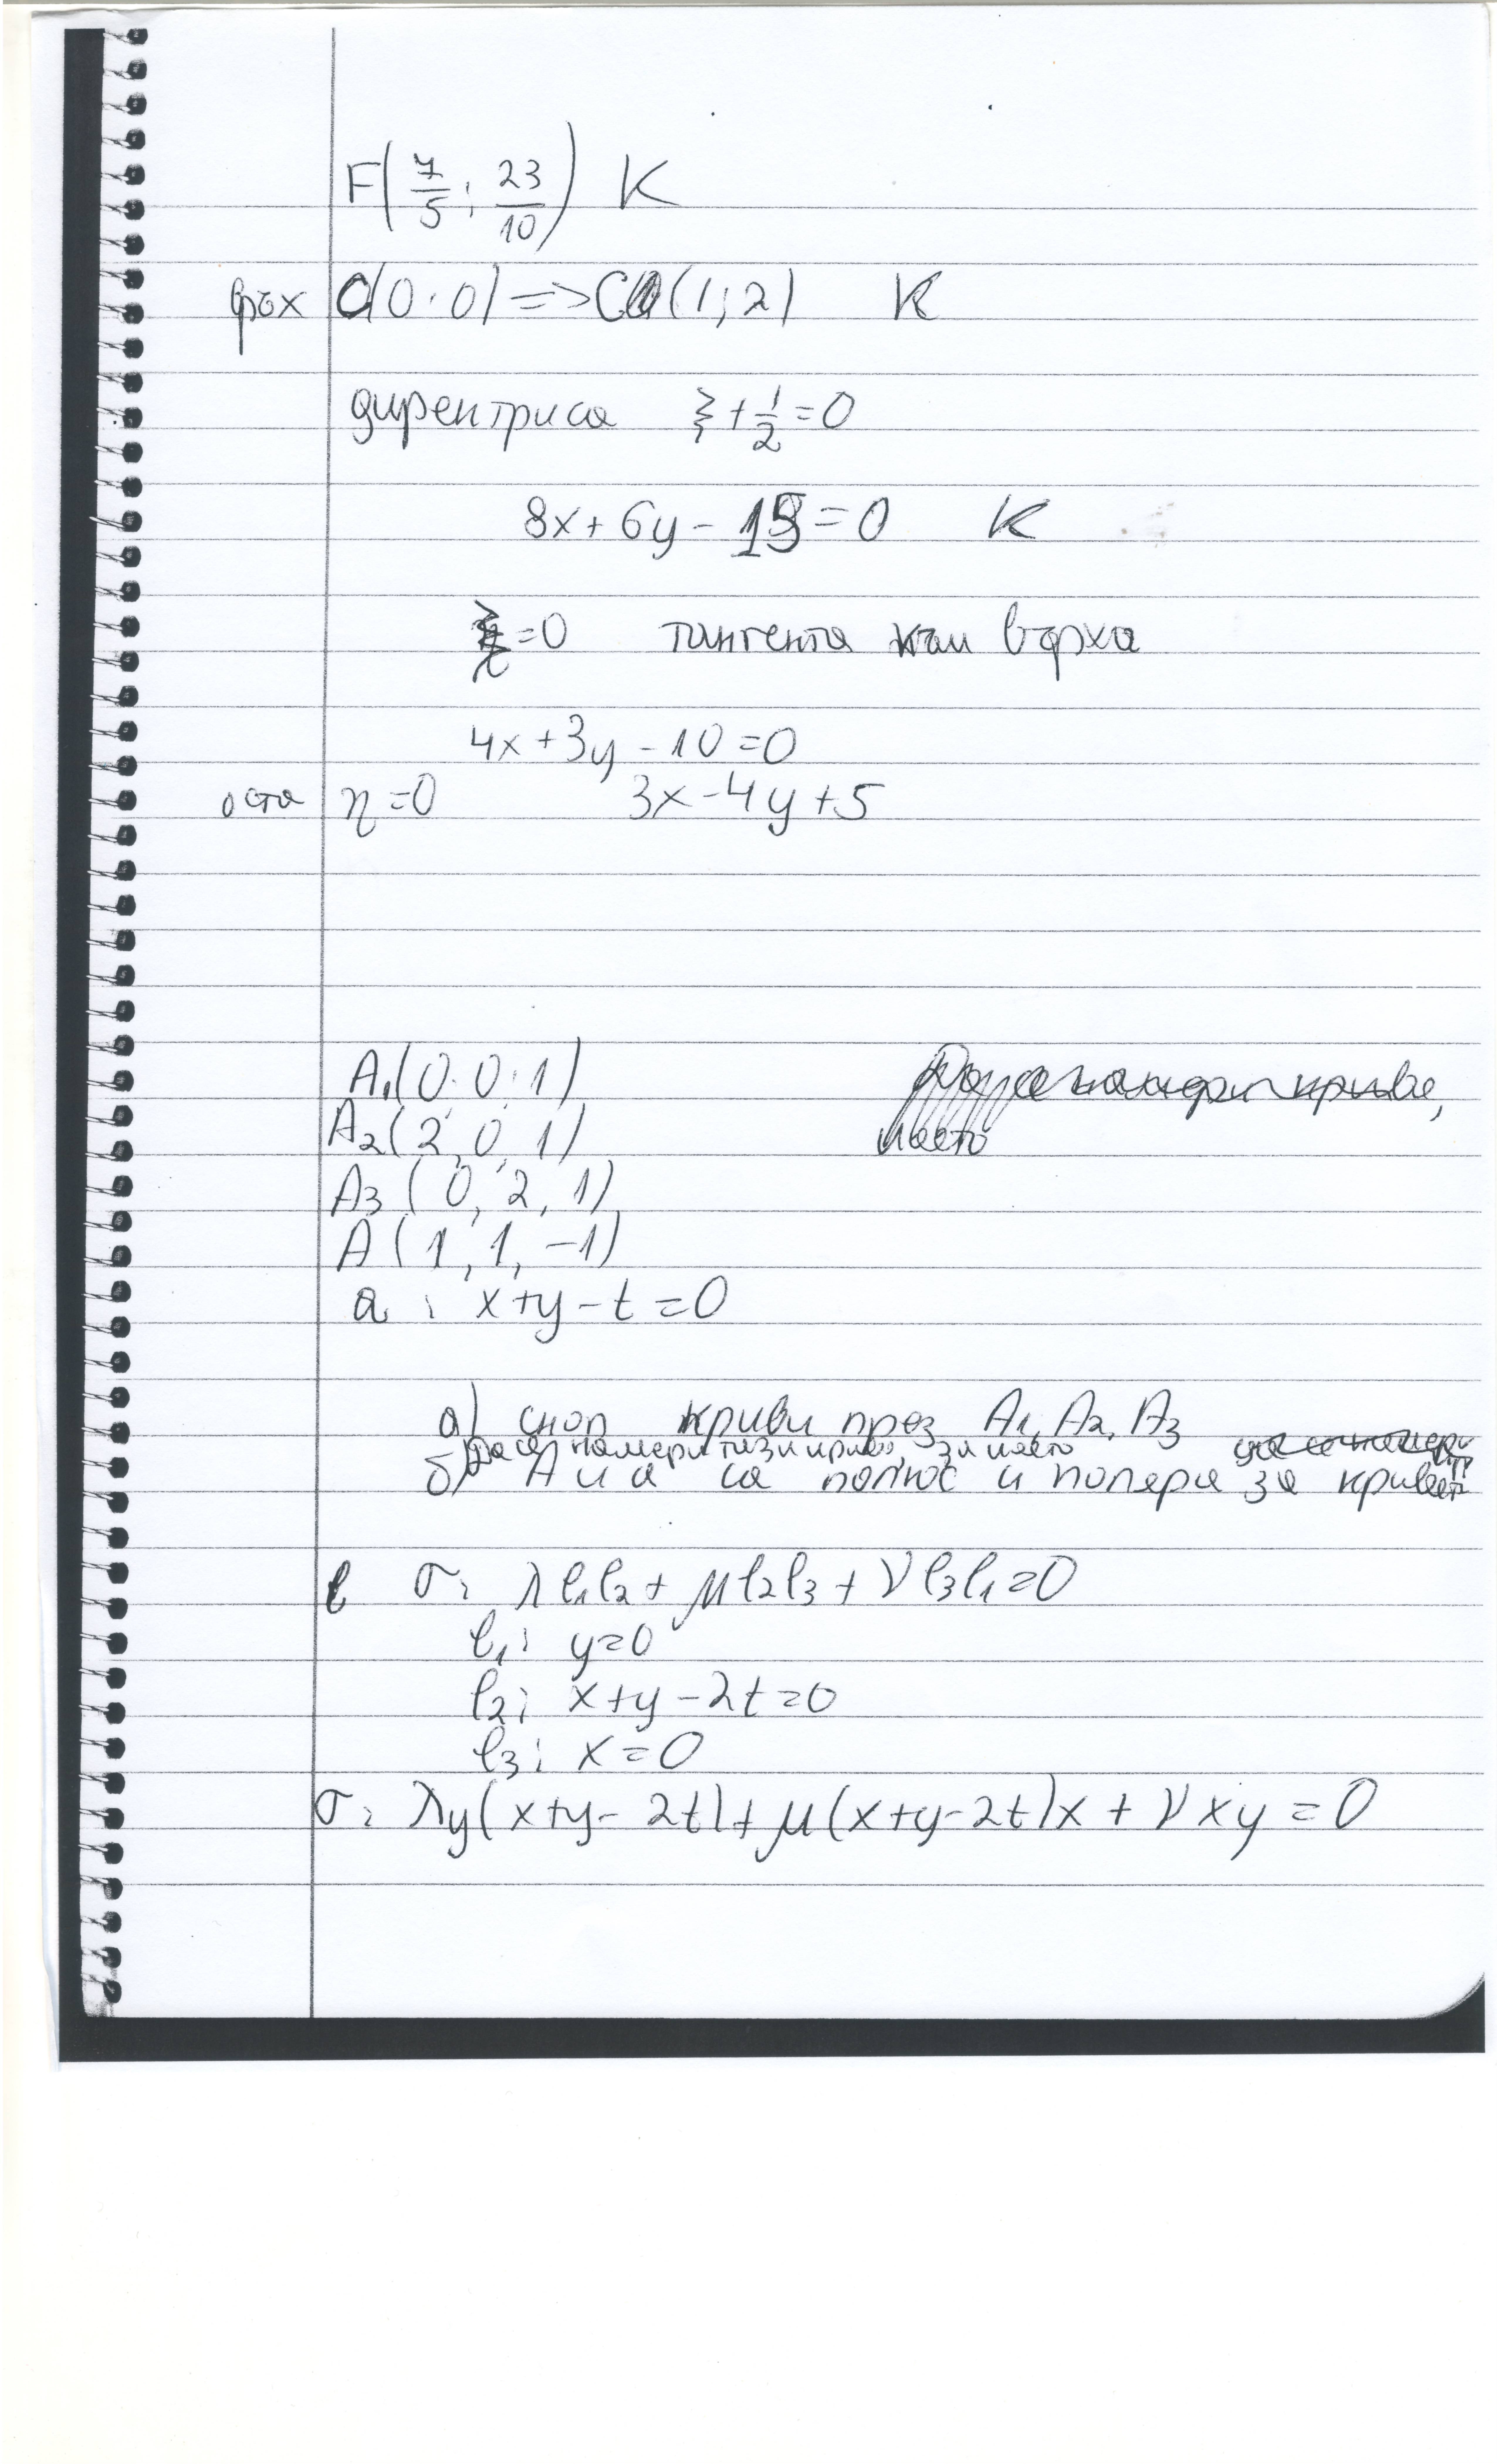 F(7/5; 23/10) K
връх O(0;0) => C(1;2) K
директриса ξ + 1/2 = 0
8x + 6y - 15 = 0 K
ξ = 0 тангента към върха
4x + 3y - 10 = 0
оста η = 0 3x - 4y + 5
A₁(0, 0, 1)
A₂(2, 0, 1)
A₃(0, 2, 1)
A(1, 1, -1)
a: x + y - t = 0
а) сноп криви през A₁, A₂, A₃
да се намери тази крива, за която
б) A и a са полюс и поляра за кривата
σ: λl₁l₂ + μl₂l₃ + νl₃l₁ = 0
l₁: y = 0
l₂: x + y - 2t = 0
l₃: x = 0
σ: λy(x + y - 2t) + μ(x + y - 2t)x + νxy = 0